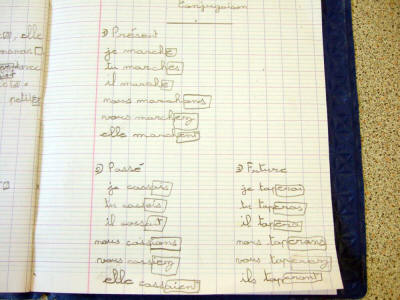 elle
petite
Conjugaison
Présent
je marche
tu marches
il marche
nous marchons
vous marchez
elle marchent
Passé
je cassais
tu cassais
il cassait
nous cassions
vous cassiez
elle cassaient
Future
je taperai
tu taperas
il tapera
nous taperons
vous taperez
ils taperont